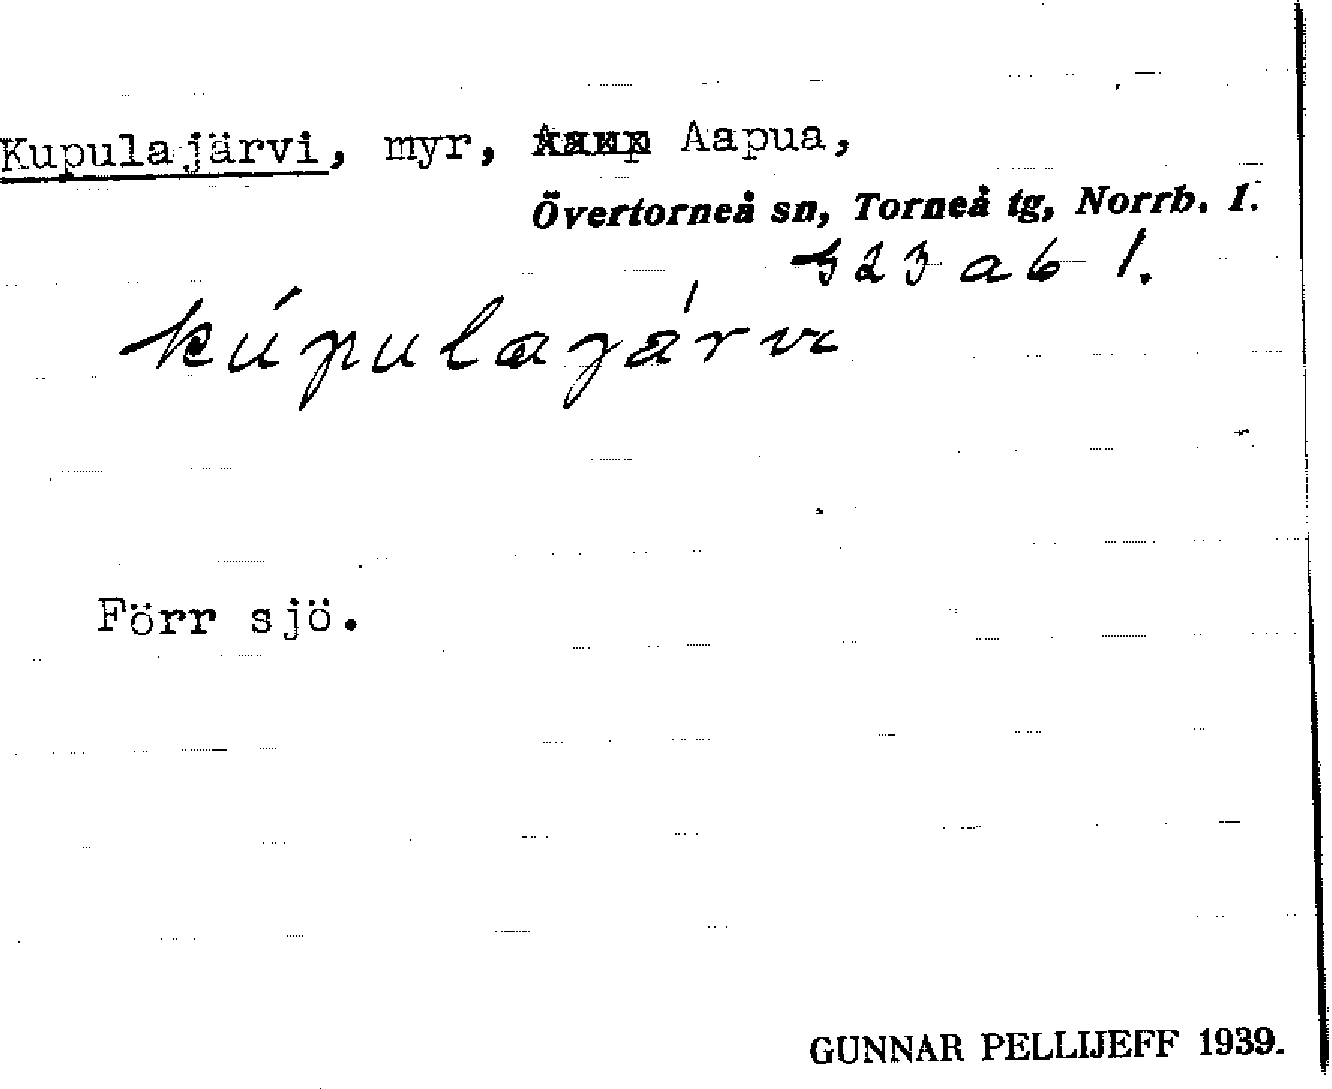 Kupulajärvi, myr, Aapua,
Övertorneå sn, Torneå tg, Norrb. l.
323 ab 1.
kúpulajárvi
Förr sjö.
GUNNAR PELLIJEFF 1939.